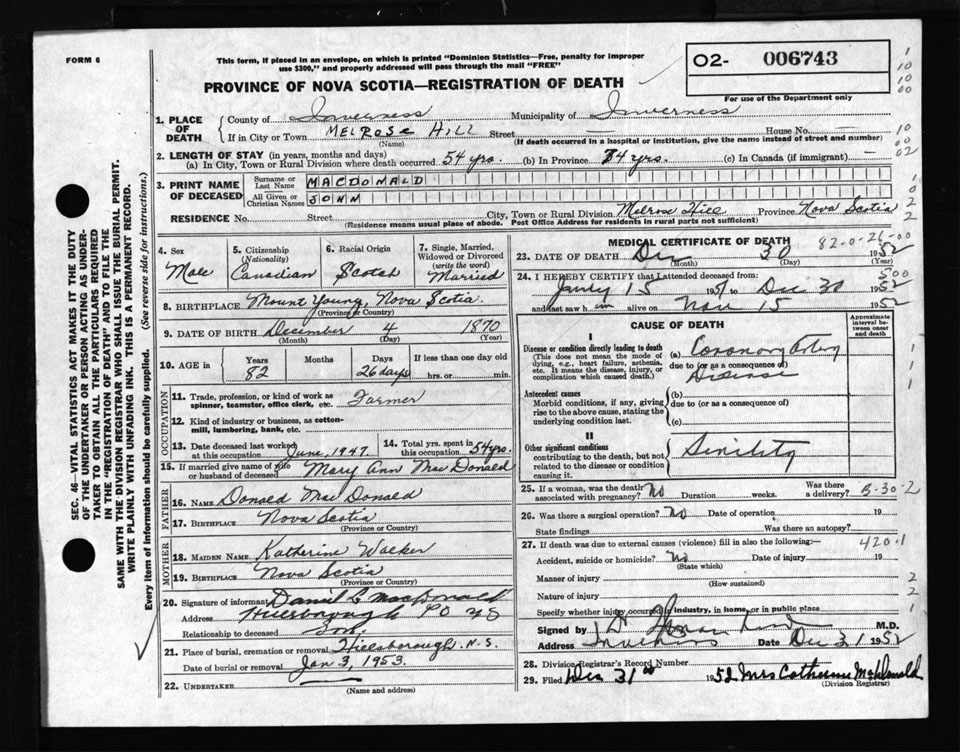 FORM 6
This form, if placed in an envelope, on which is printed "Dominion Statistics—Free, penalty for improper
use $300," and properly addressed will pass through the mail "FREE"
PROVINCE OF NOVA SCOTIA—REGISTRATION OF DEATH
O2- 006743
For use of the Department only
1. PLACE OF DEATH
County of Inverness Municipality of Inverness
If in City or Town MELROSE HILL Street — House No. —
(Name) (If death occurred in a hospital or institution, give its name instead of street and number)
2. LENGTH OF STAY (in years, months and days)
(a) In City, Town or Rural Division where death occurred 54 yrs. (b) In Province 74 yrs. (c) In Canada (if immigrant) —
3. PRINT NAME OF DECEASED
Surname or Last Name MACDONALD
All Given or Christian Names JOHN
RESIDENCE No. Street City, Town or Rural Division Melrose Hill Province Nova Scotia
(Residence means usual place of abode. Post Office Address for residents in rural parts not sufficient)
4. Sex Male
5. Citizenship (Nationality) Canadian
6. Racial Origin Scotch
7. Single, Married, Widowed or Divorced (write the word) Married
8. BIRTHPLACE Mount Young, Nova Scotia.
(Province or Country)
9. DATE OF BIRTH December 4 1870
(Month) (Day) (Year)
10. AGE in Years 82 Months Days 26 days If less than one day old hrs. or min.
OCCUPATION
11. Trade, profession, or kind of work as spinner, teamster, office clerk, etc. Farmer
12. Kind of industry or business, as cotton-mill, lumbering, bank, etc.
13. Date deceased last worked at this occupation June, 1947.
14. Total yrs. spent in this occupation 54 yrs.
15. If married give name of wife or husband of deceased Mary Ann MacDonald
FATHER
16. NAME Donald MacDonald
17. BIRTHPLACE Nova Scotia
(Province or Country)
MOTHER
18. MAIDEN NAME Katherine Walker
19. BIRTHPLACE Nova Scotia
(Province or Country)
20. Signature of informant Daniel L MacDonald
Address Hillsborough PO NS
Relationship to deceased Son.
21. Place of burial, cremation or removal Hillsborough, N.S.
Date of burial or removal Jan 3, 1953.
22. UNDERTAKER
(Name and address)
MEDICAL CERTIFICATE OF DEATH 82-0-26-00
23. DATE OF DEATH Dec 30 1952
(Month) (Day) (Year)
24. I HEREBY CERTIFY that I attended deceased from: 500
Janly 15 1951 to Dec 30 1952
and last saw him alive on Nov 15 1952
CAUSE OF DEATH
Approximate interval between onset and death
I
Disease or condition directly leading to death
(This does not mean the mode of dying, e.g., heart failure, asthenia, etc. It means the disease, injury, or complication which caused death.)
(a) Coronary Artery
due to (or as a consequence of)
Disease
Antecedent causes
Morbid conditions, if any, giving rise to the above cause, stating the underlying condition last.
(b)
due to (or as a consequence of)
(c)
II
Other significant conditions
contributing to the death, but not related to the disease or condition causing it.
Sinility
25. If a woman, was the death associated with pregnancy? No Duration weeks. Was there a delivery? B-30-2
26. Was there a surgical operation? No Date of operation 19
State findings Was there an autopsy?
27. If death was due to external causes (violence) fill in also the following:— 420.1
Accident, suicide or homicide? No Date of injury 19
(State which)
Manner of injury
(How sustained)
Nature of injury
Specify whether injury occurred in industry, in home, or in public place
Signed by M.D.
Address Date Dec 31 1952
28. Division Registrar's Record Number
29. Filed Dec 31st 1952 Mrs Catherine McDonald
(Division Registrar)
SEC. 46—VITAL STATISTICS ACT MAKES IT THE DUTY
OF THE UNDERTAKER OR PERSON ACTING AS UNDER-
TAKER TO OBTAIN ALL THE PARTICULARS REQUIRED
IN THE "REGISTRATION OF DEATH" AND TO FILE THE
SAME WITH THE DIVISION REGISTRAR WHO SHALL ISSUE THE BURIAL PERMIT.
WRITE PLAINLY WITH UNFADING INK. THIS IS A PERMANENT RECORD.
Every item of information should be carefully supplied. (See reverse side for instructions.)